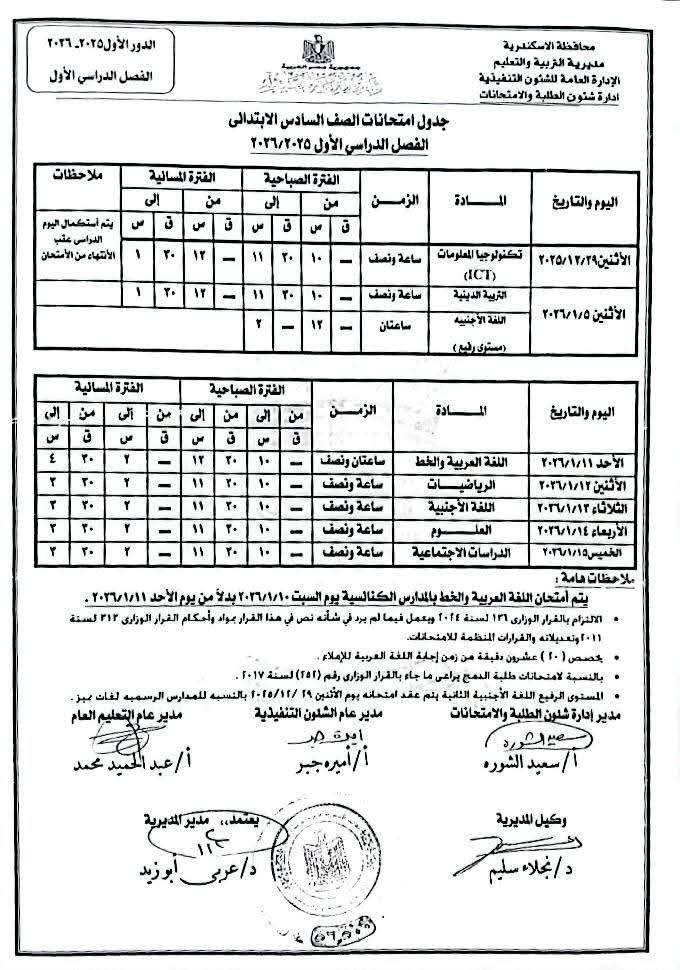 محافظة الاسكندرية
مديرية التربية والتعليم
الإدارة العامة للشئون التنفيذية
ادارة شئون الطلبة والامتحانات
الدور الأول ٢٠٢٥ـ ٢٠٢٦
الفصل الدراسي الأول
جدول امتحانات الصف السادس الابتدائى
الفصل الدراسي الأول ٢٠٢٦/٢٠٢٥
اليوم والتاريخ المـــادة الزمـن الفترة الصباحية الفترة المسائية ملاحظات
من إلى من إلى
ق س ق س ق س ق س
الأثنين ٢٠٢٥/١٢/٢٩ تكنولوجيا المعلومات (ICT) ساعة ونصف ــ ١٠ ٣٠ ١١ ــ ١٢ ٣٠ ١ يتم أستكمال اليوم الدراسى عقب الأنتهاء من الأمتحان
الأثنين ٢٠٢٦/١/٥ التربية الدينية ساعة ونصف ــ ١٠ ٣٠ ١١ ــ ١٢ ٣٠ ١
اللغة الأجنبيه (مستوى رفيع) ساعتان ــ ١٢ ــ ٢
اليوم والتاريخ المـــادة الزمـن الفترة الصباحية الفترة المسائية
من إلى إلى من إلى من إلى
ق س ق س ق س ق س
الأحد ٢٠٢٦/١/١١ اللغة العربية والخط ساعتان ونصف ــ ١٠ ٣٠ ١٢ ــ ٢ ٣٠ ٤
الأثنين ٢٠٢٦/١/١٢ الرياضيـــات ساعة ونصف ــ ١٠ ٣٠ ١١ ــ ٢ ٣٠ ٣
الثلاثاء ٢٠٢٦/١/١٣ اللغة الأجنبية ساعة ونصف ــ ١٠ ٣٠ ١١ ــ ٢ ٣٠ ٣
الأربعاء ٢٠٢٦/١/١٤ العلـــوم ساعة ونصف ــ ١٠ ٣٠ ١١ ــ ٢ ٣٠ ٣
الخميس ٢٠٢٦/١/١٥ الدراسات الاجتماعية ساعة ونصف ــ ١٠ ٣٠ ١١ ــ ٢ ٣٠ ٣
ملاحظات هامة :
يتم أمتحان اللغة العربية والخط بالمدارس الكنائسية يوم السبت ٢٠٢٦/١/١٠ بدلاً من يوم الأحد ٢٠٢٦/١/١١ .
• الالتزام بالقرار الوزارى ١٣٦ لسنة ٢٠٢٤ ويعمل فيما لم يرد في شأنه نص في هذا القرار بمواد وأحكام القرار الوزارى ٣١٣ لسنة
٢٠١١ وتعديلاته والقرارات المنظمة للامتحانات.
• يخصص (٢٠) عشرون دقيقة من زمن إجابة اللغة العربية للإملاء .
• بالنسبة لامتحانات طلبة الدمج يراعى ما جاء بالقرار الوزارى رقم (٢٥٢) لسنة ٢٠١٧ .
• المستوى الرفيع اللغة الأجنبية الثانية يتم عقد امتحانه يوم الأثنين ٢٩ /١٢ /٢٠٢٥ بالنسبه للمدارس الرسميه لغات مميز .
مدير إدارة شئون الطلبة والامتحانات مدير عام الشئون التنفيذية مدير عام التعليم العام
أ/ سعيد الشوره أ/ أميره جبر أ/ عبد الحميد محمد
وكيل المديرية يعتمد،، مدير المديرية
د/ نجلاء سليم د/ عربى أبو زيد